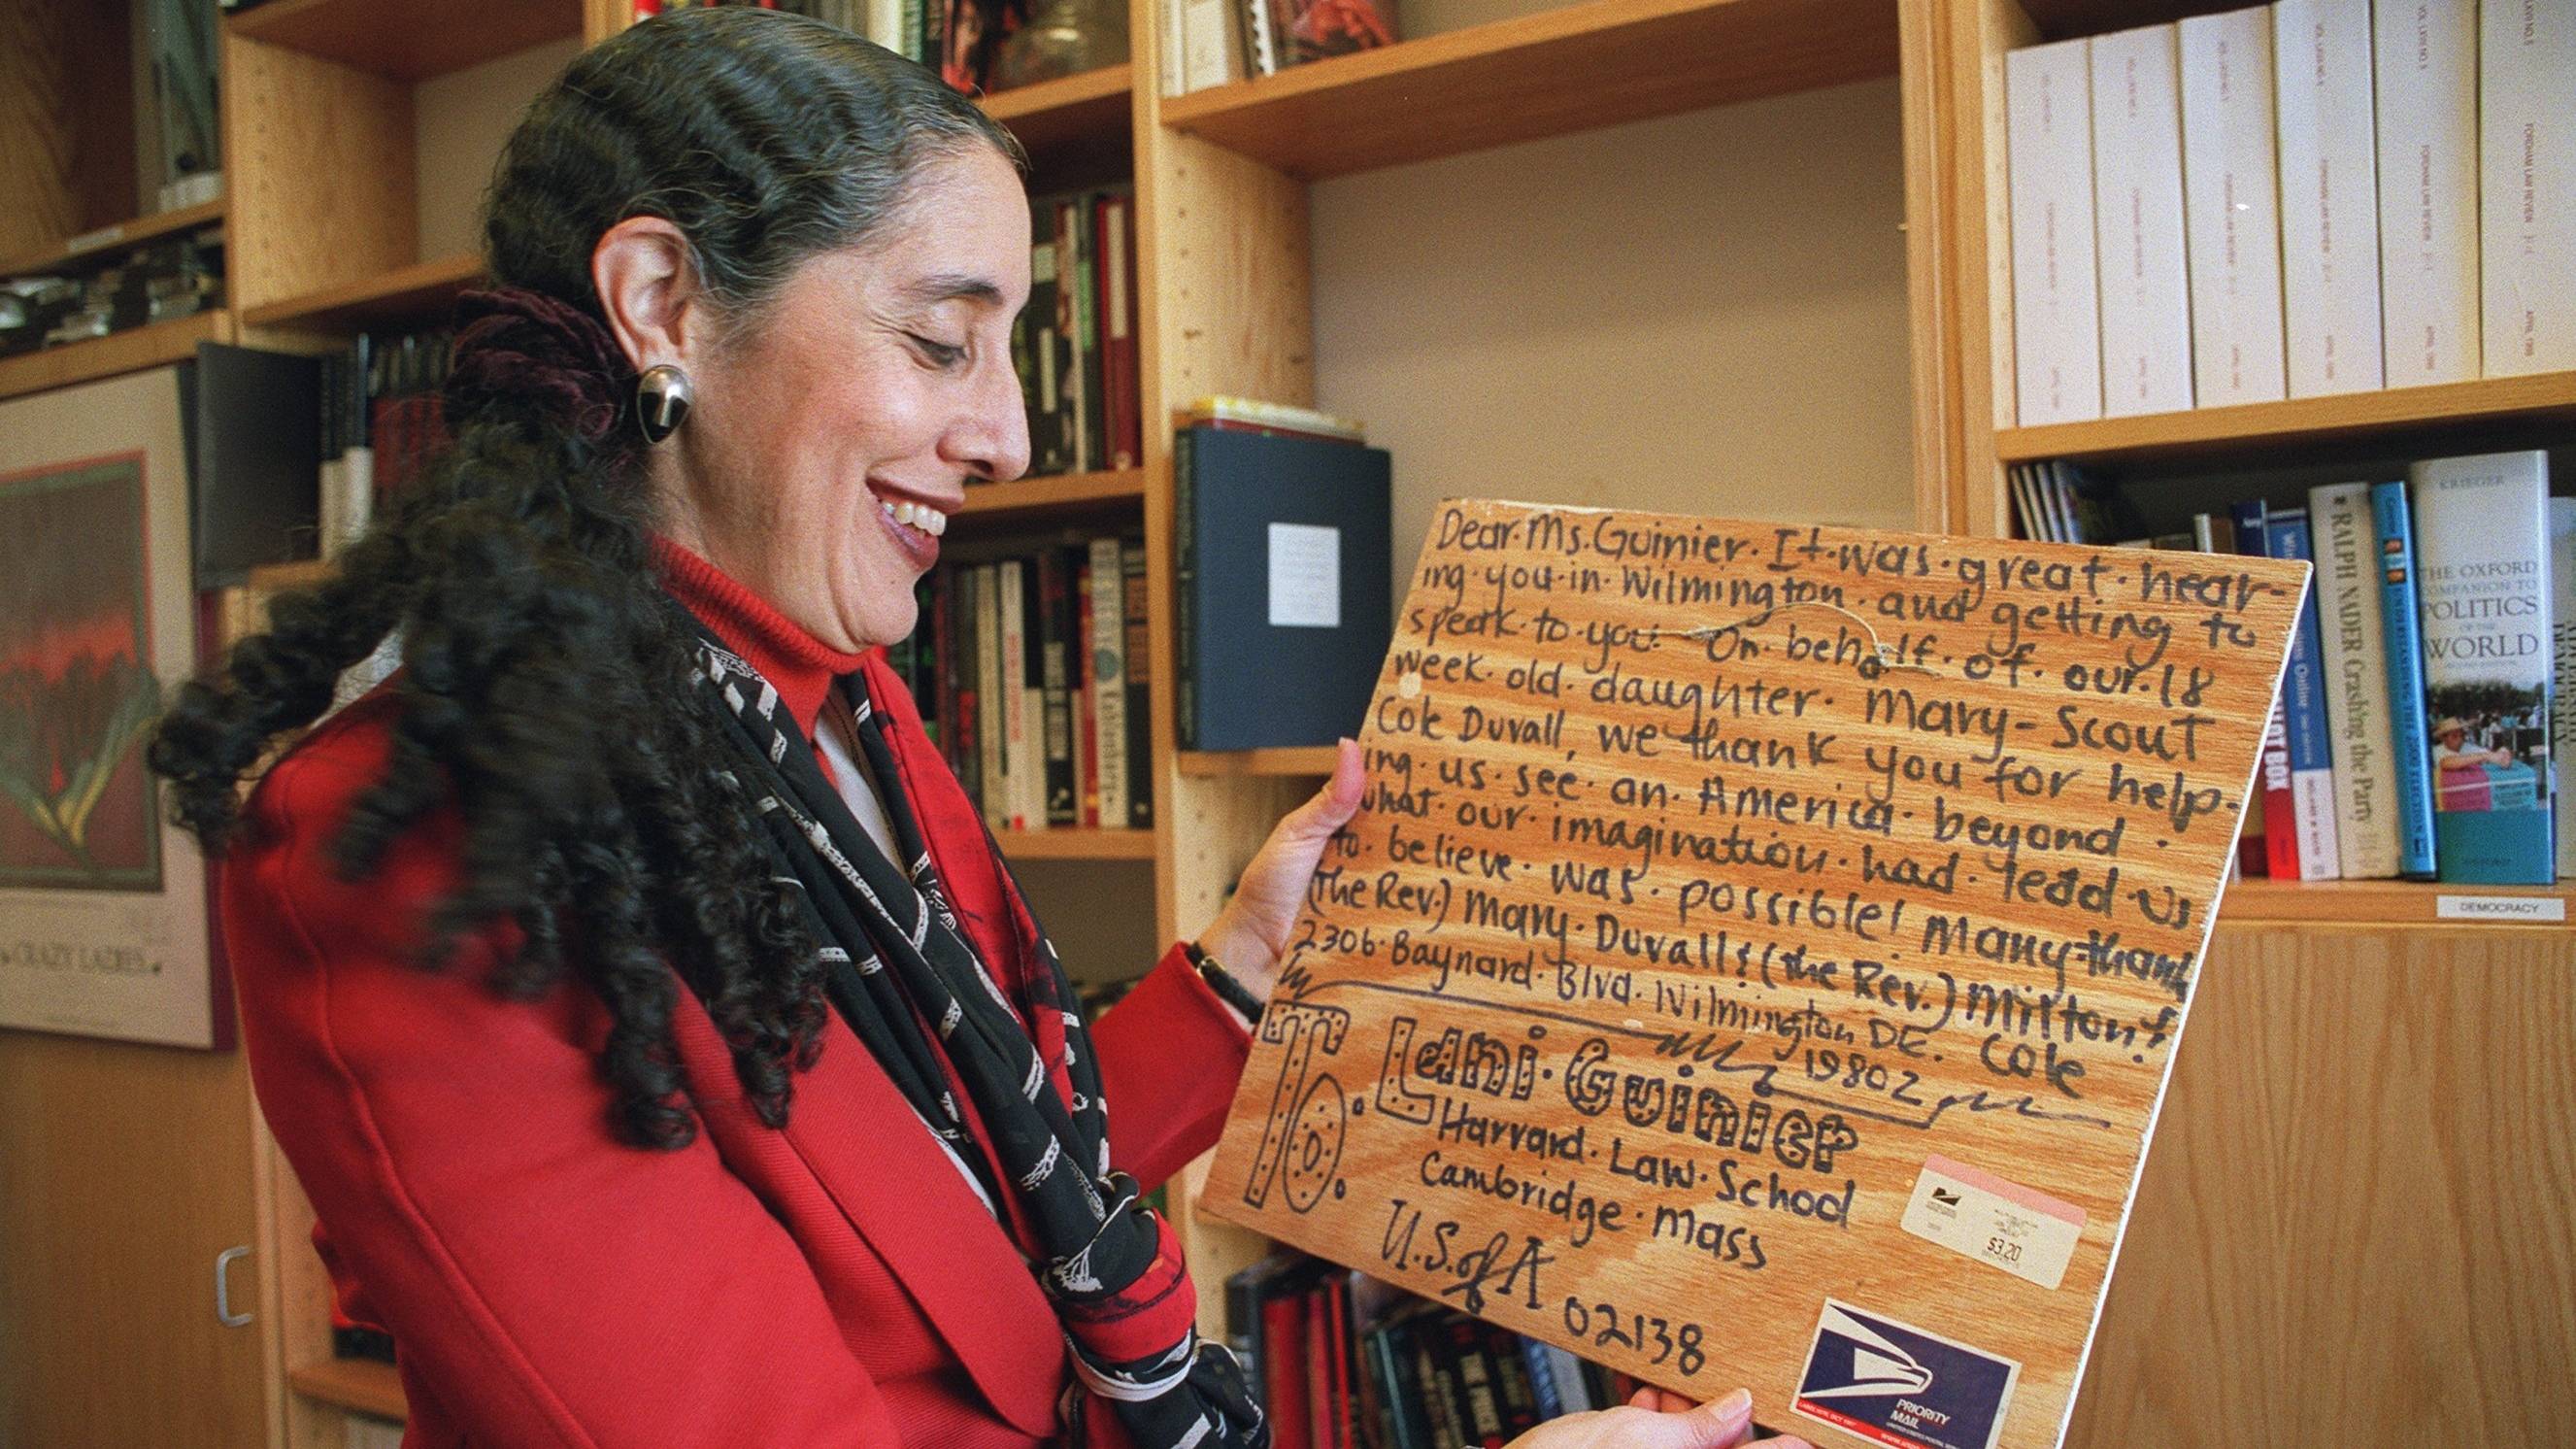 Dear. Ms. Guinier. It. was. great. hear-
ing. you. in. Wilmington. and getting to
speak. to. you. On. behalf. of. our. 18
week. old. daughter. Mary-Scout
Cole Duvall, we thank you for help-
ing. us. see. an. America. beyond.
what. our. imagination. had. lead. us
to. believe. was. possible! Many thank
(The Rev.) Mary. Duvall & (the Rev.) Milton f.
2306. Baynard. Blvd. Wilmington DE. Cole
19802
To. Lani. Guinier
Harvard. Law. School
Cambridge. Mass
U.S. of A
02138
$3.20
PRIORITY
MAIL
CRAZY LADIES
KRIEGER
THE OXFORD
COMPANION TO
POLITICS
OF THE
WORLD
RALPH NADER Crashing the Party
FORDHAM LAW REVIEW
FORDHAM LAW REVIEW
DEMOCRACY